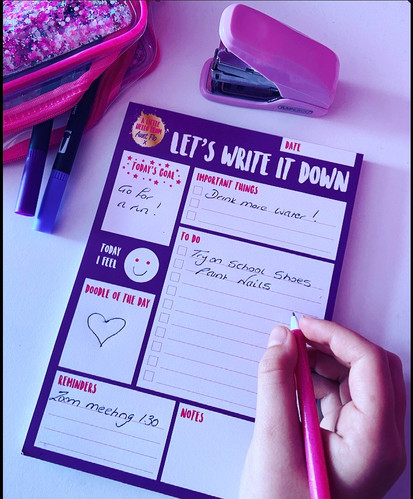 A LITTLE
HELLO FROM
LET'S WRITE IT DOWN
DATE
TODAY'S GOAL
Go for
a run!
IMPORTANT THINGS
Drink more water!
TODAY
I FEEL
TO DO
Try on School Shoes
Paint Nails
DOODLE OF THE DAY
REMINDERS
Zoom meeting 1.30
NOTES